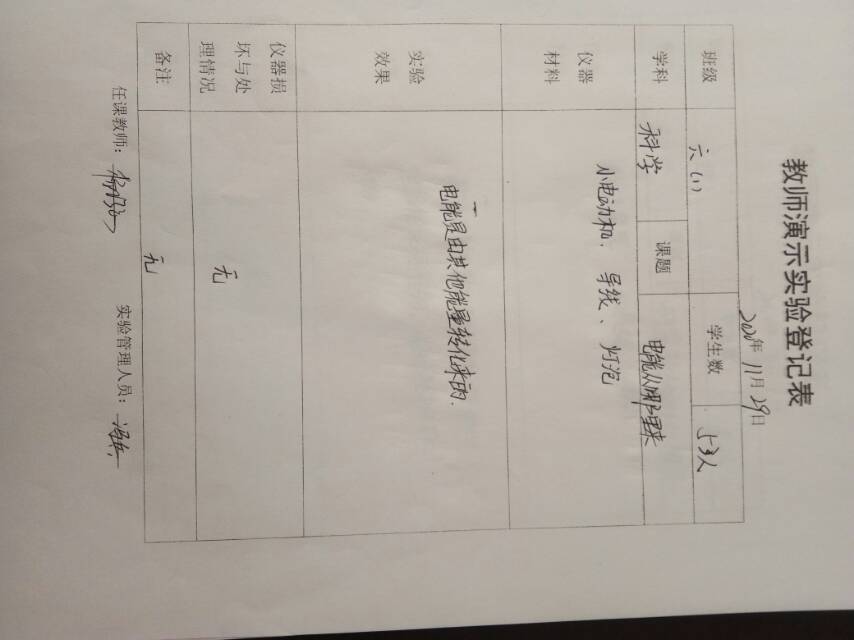 教师演示实验登记表
2020年 11月 29日
班级 六（1） 学生数 53人
学科 科学 课题 电能从哪里来
仪器
材料
小电动机、导线、灯泡
实验
效果
电能是由其他能量转化来的.
仪器损
坏与处
理情况
无
备注 无
任课教师： 实验管理人员：